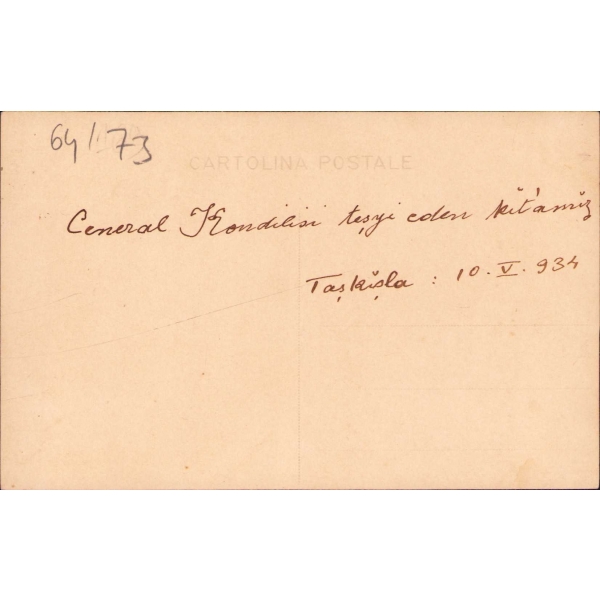 64/73
CARTOLINA POSTALE
Ceneral Kondilisi teşyi eden kit'amiz
Taşkişla : 10. V. 934